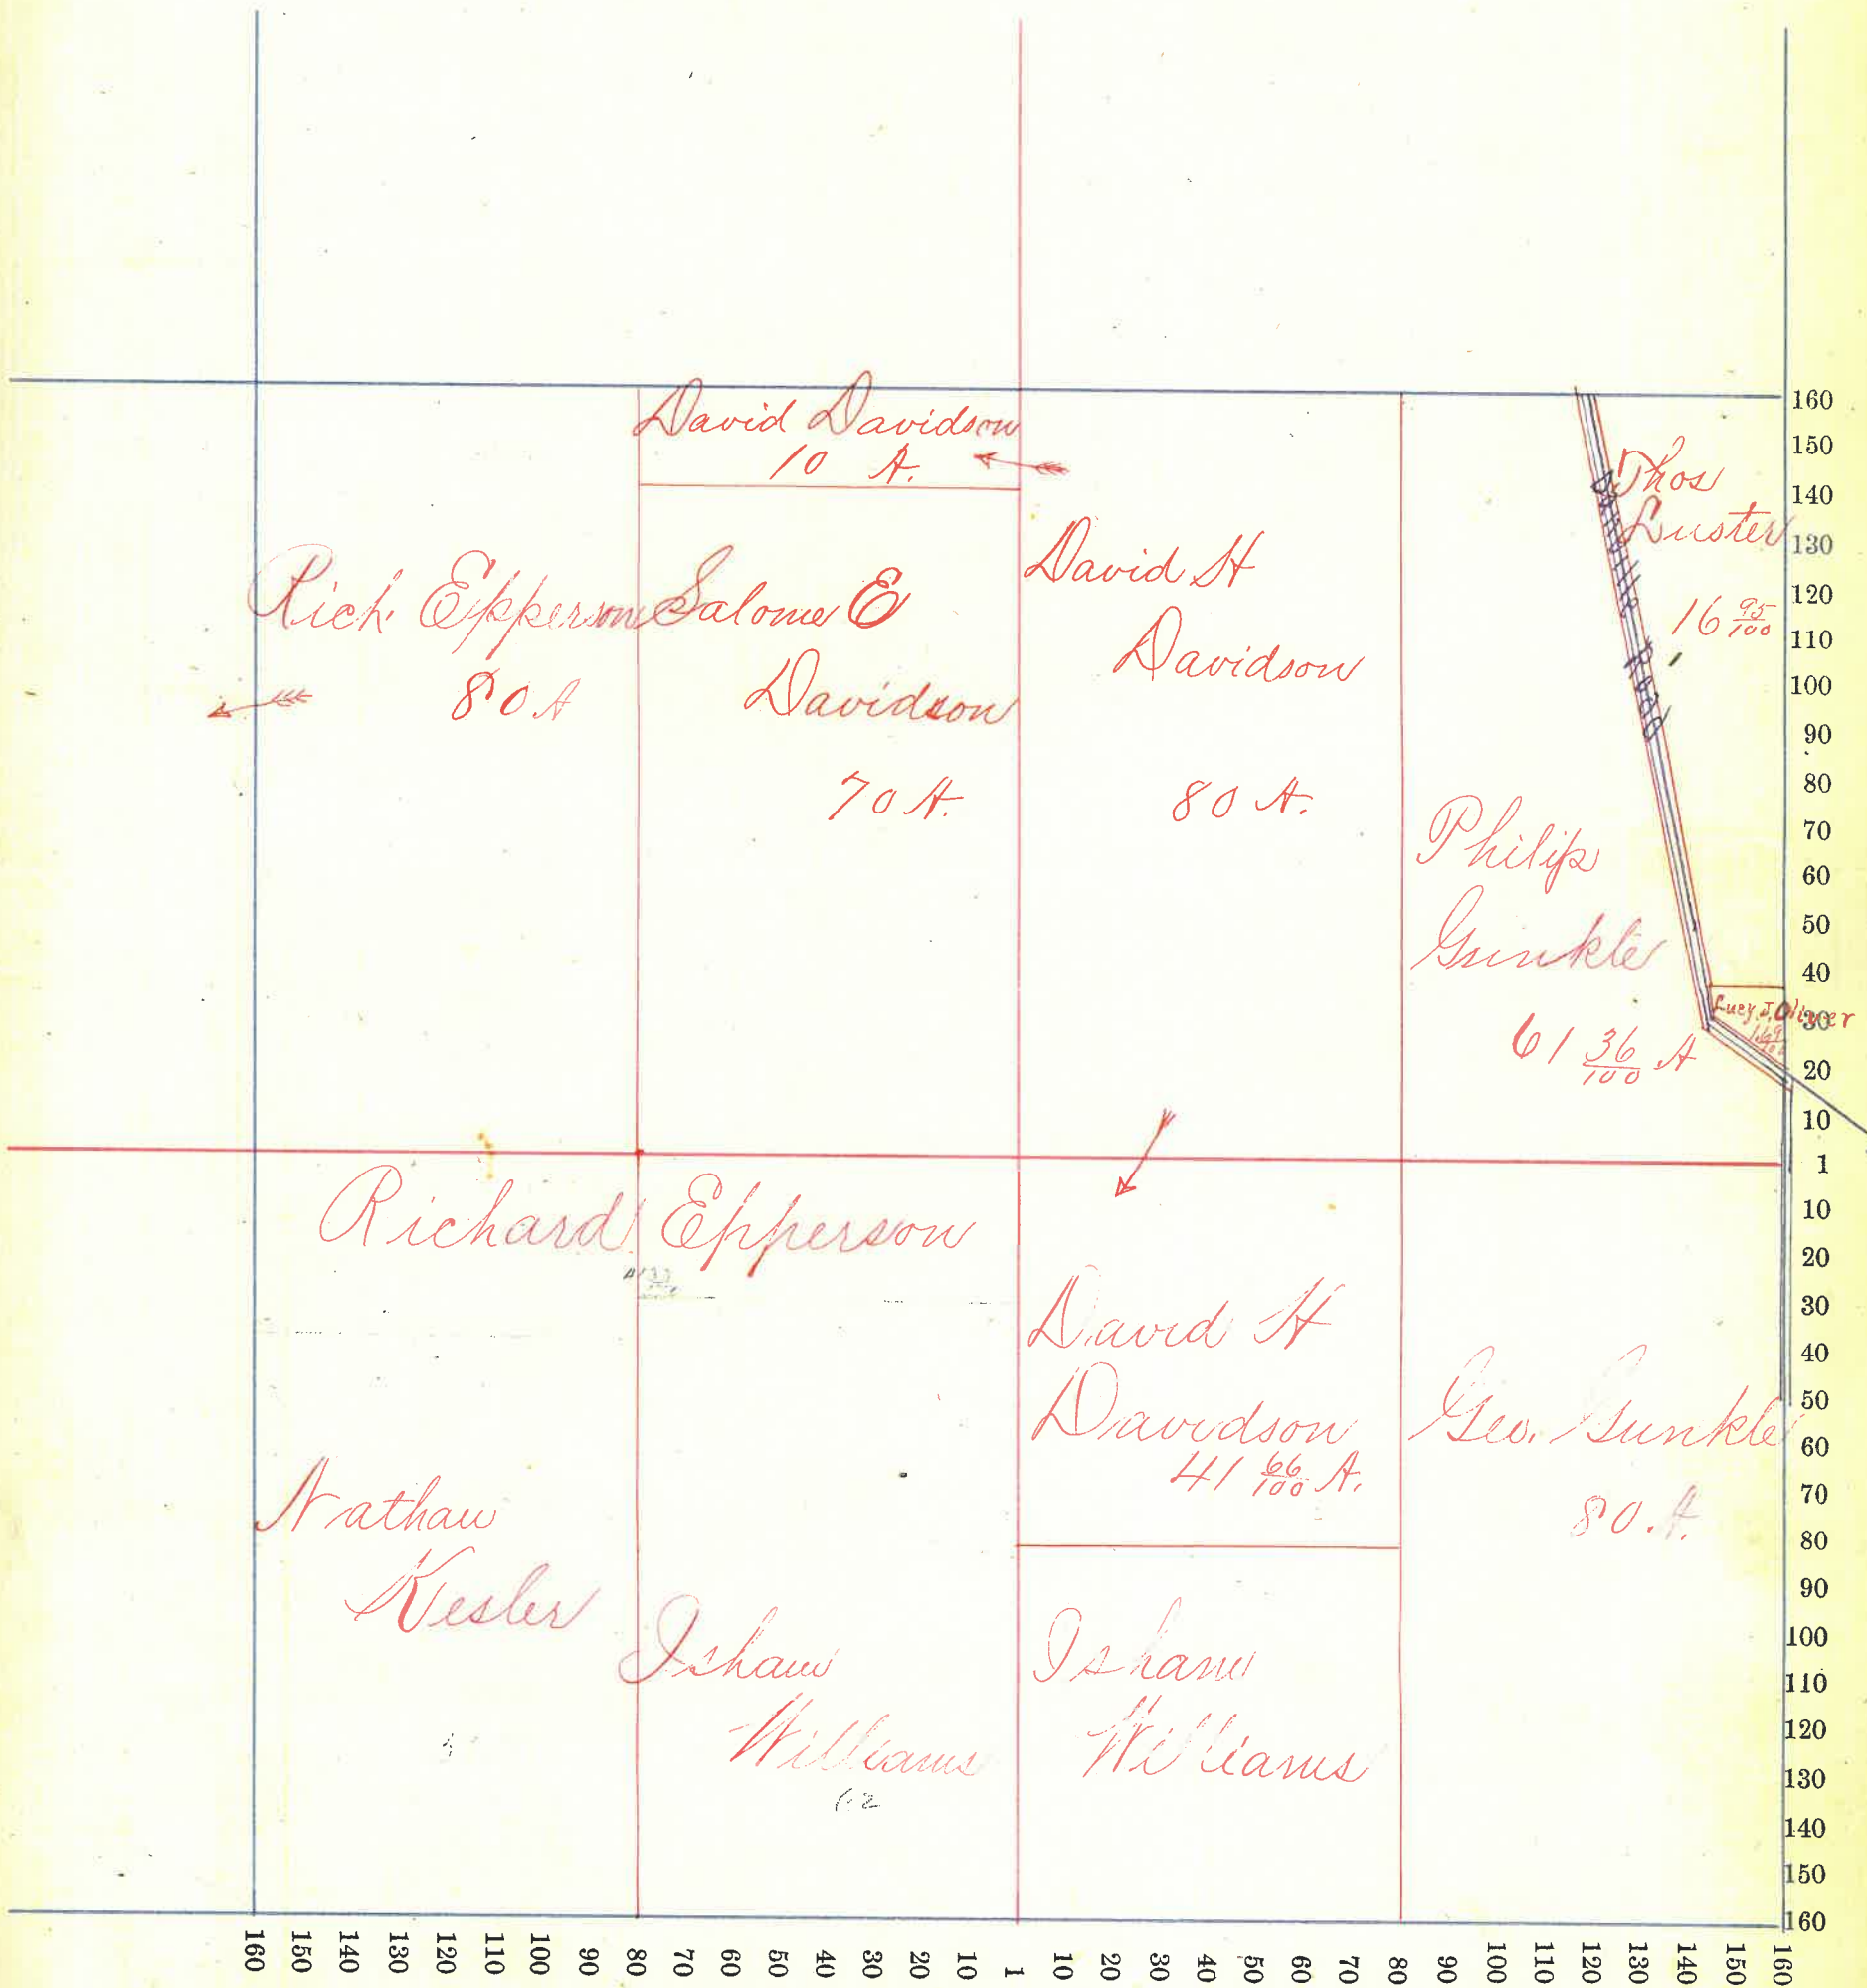 David Davidson
10 A.
Rich. Epperson
80 A
Salome E
Davidson
70 A.
David H
Davidson
80 A.
Thos
Luster
16 95/100
Danville Road
Philip
Gunkle
61 36/100 A
Lucy J. Oliver
1 69/100
Richard Epperson
David H
Davidson
41 66/100 A.
Geo. Gunkle
80 A.
Nathan
Kesler
Isham
Williams
62
Isham
Williams
160
150
140
130
120
110
100
90
80
70
60
50
40
30
20
10
1
10
20
30
40
50
60
70
80
90
100
110
120
130
140
150
160
160 150 140 130 120 110 100 90 80 70 60 50 40 30 20 10 1 10 20 30 40 50 60 70 80 90 100 110 120 130 140 150 160